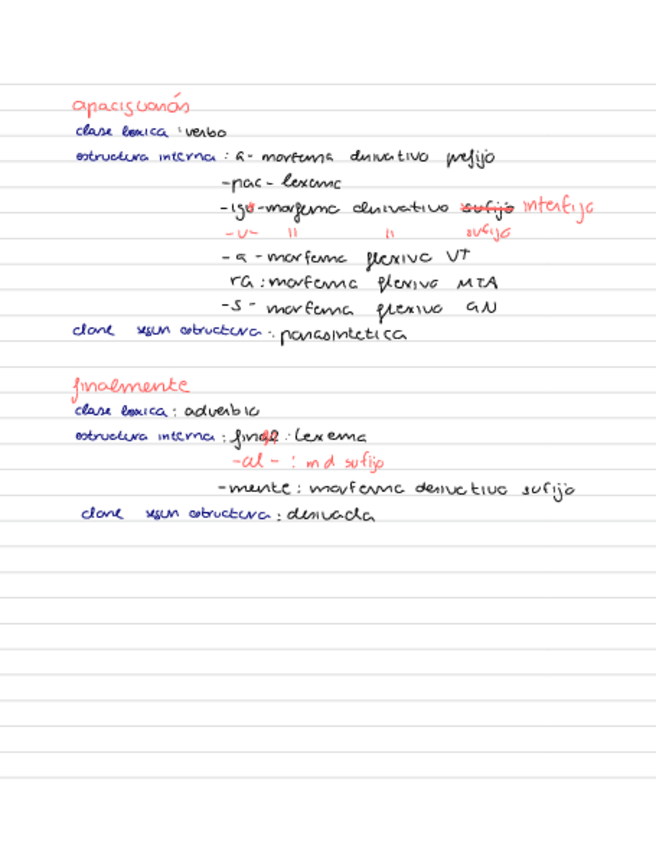 apaciguarás
clase léxica : verbo
estructura interna : a- morfema derivativo prefijo
-pac- lexema
-igu-morfema derivativo sufijo interfijo
-u- " " sufijo
-a- morfema flexivo VT
ra: morfema flexivo MTA
-s- morfema flexivo GN
clase según estructura : parasintetica
finalmente
clase léxica : adverbio
estructura interna : final : lexema
-al- : md sufijo
-mente: morfema derivativo sufijo
clase según estructura : derivada